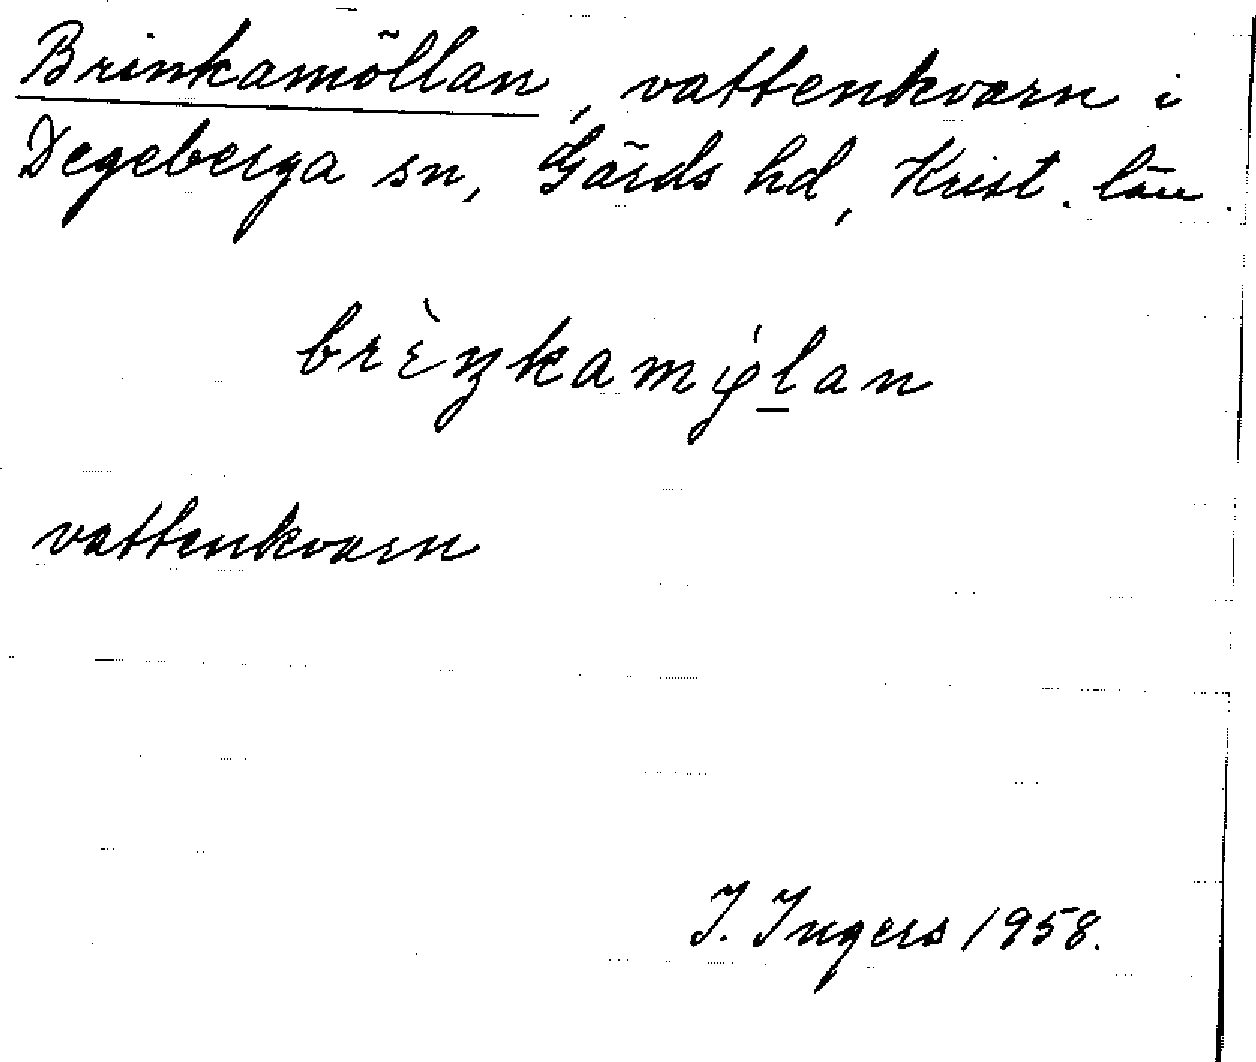 Brinkamöllan, vattenkvarn i
Degeberga sn, Gärds hd, Krist. län.
brɛ̀ŋkamǿl̲an
vattenkvarn
I. Ingers 1958.